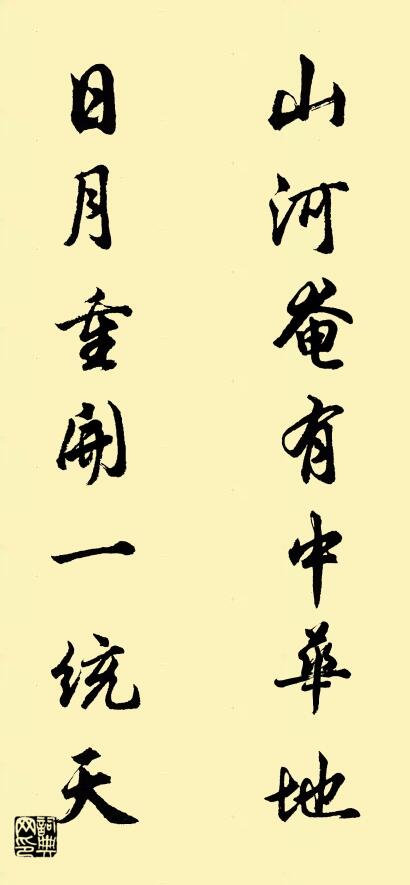 山河奄有中華地
日月重開一統天
詞典網印